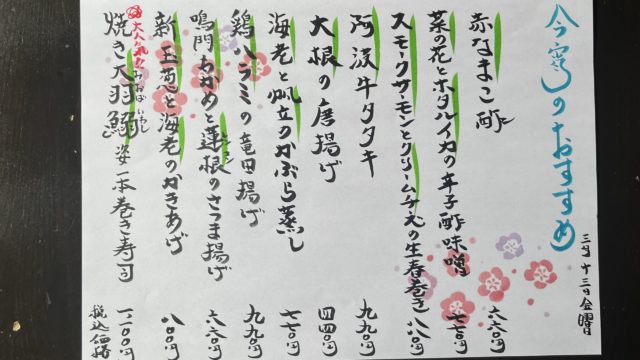 今宵のおすすめ
三月十三日金曜日
赤なまこ酢 六六〇円
菜の花とホタルイカの辛子酢味噌 七七〇円
スモークサーモンとクリームチーズの生春巻き 八八〇円
阿波牛タタキ 九九〇円
大根の唐揚げ 四四〇円
海老と帆立のかぶら蒸し 七七〇円
鶏ハラミの竜田揚げ 九九〇円
鳴門わかめと蓮根のさつま揚げ 六六〇円
レンコン
新玉葱と海老のかきあげ 八八〇円
大人気!!
おおばいわし
焼き大羽鰯姿一本巻き寿司 一一〇〇円
税込価格